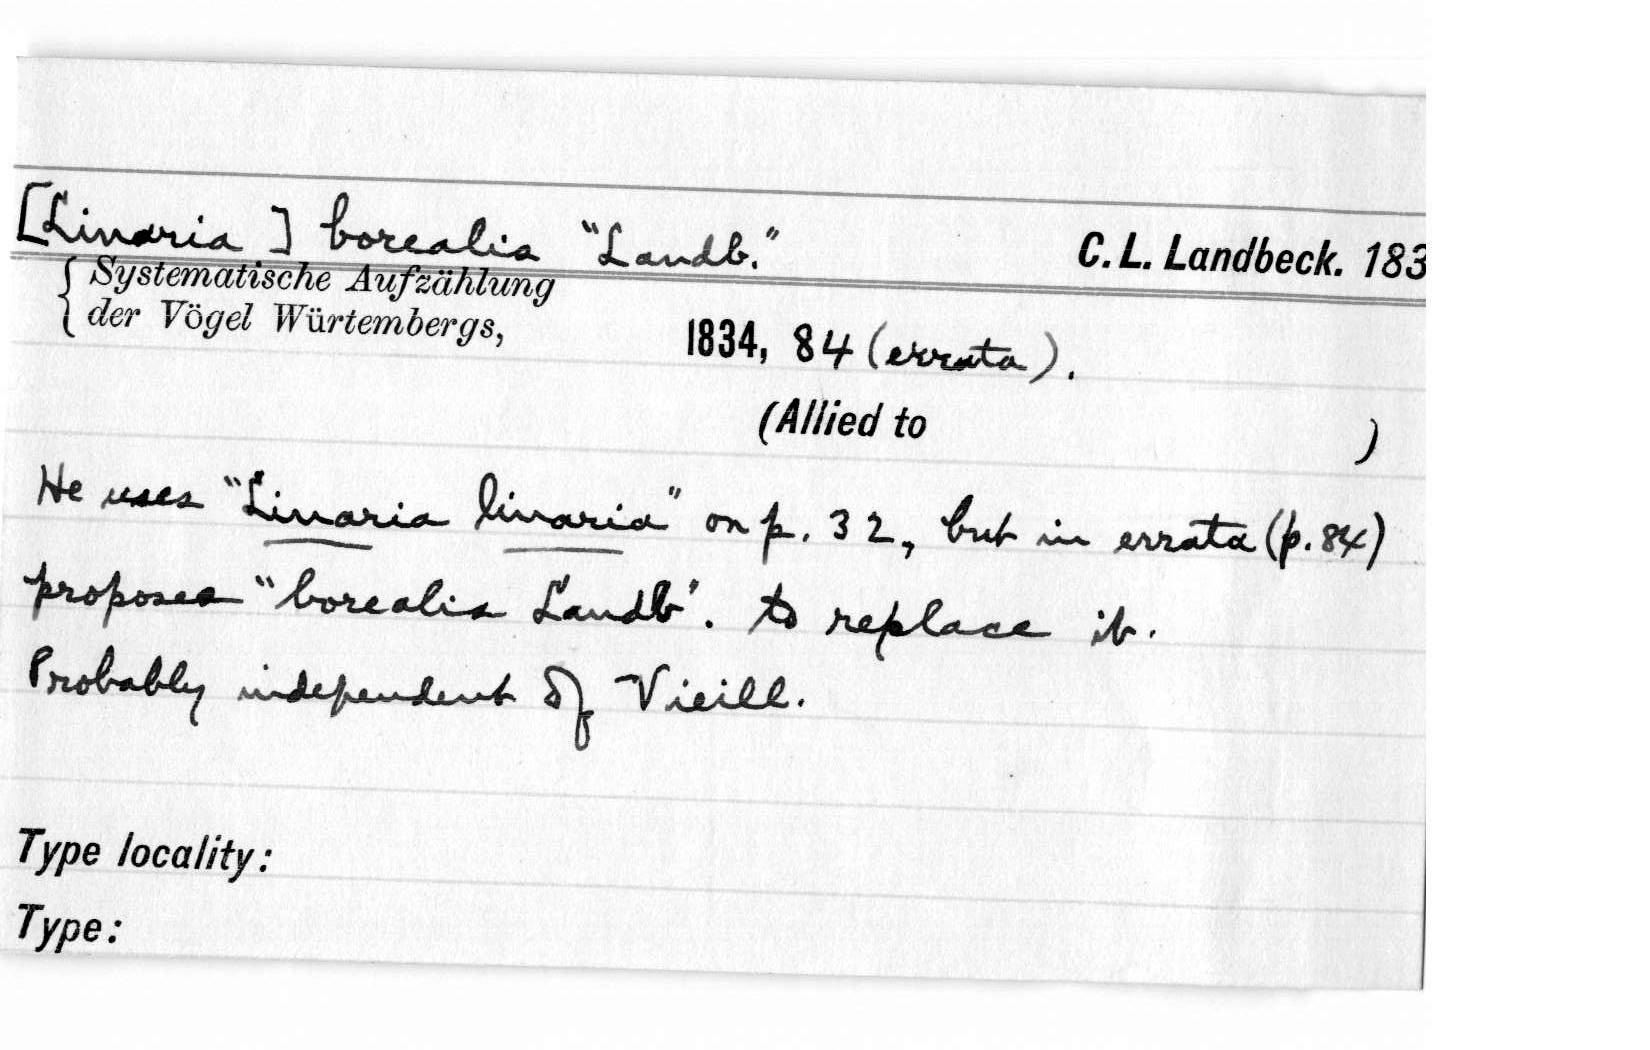 [Linaria] borealis "Landb." C. L. Landbeck. 183
Systematische Aufzählung
der Vögel Würtembergs, 1834, 84 (errata).
(Allied to )
He uses "Linaria linaria" on p. 32, but in errata (p. 84)
proposes "borealis Landb". to replace it.
Probably independent of Vieill.
Type locality:
Type: